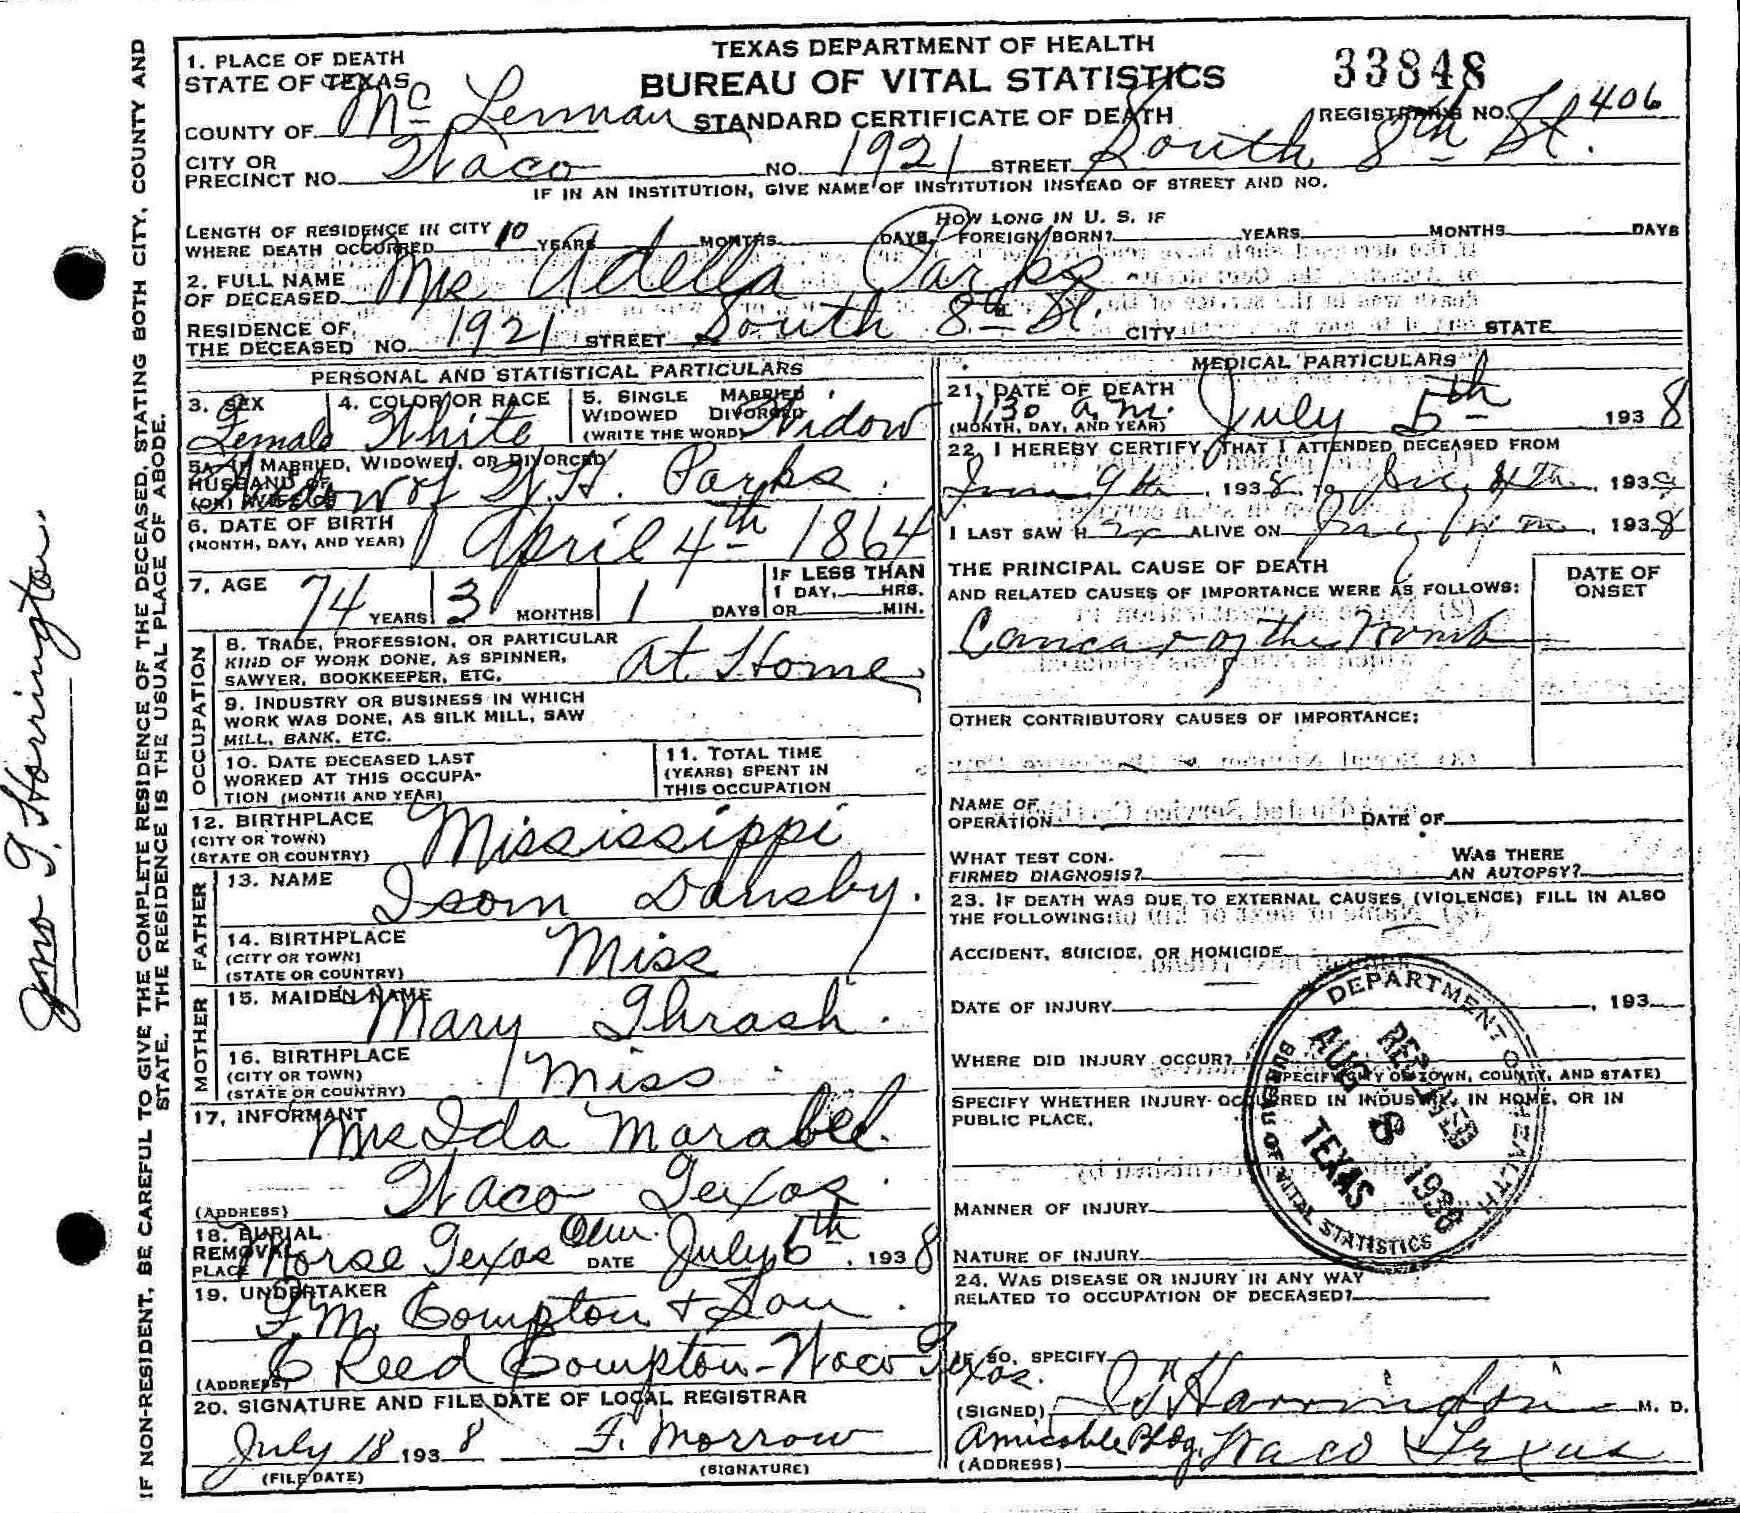 TEXAS DEPARTMENT OF HEALTH
BUREAU OF VITAL STATISTICS
STANDARD CERTIFICATE OF DEATH
33848
REGISTRAR'S NO. 406
1. PLACE OF DEATH
STATE OF TEXAS
COUNTY OF Mc Lennan
CITY OR PRECINCT NO. Waco NO. 1921 STREET South 8th St.
IF IN AN INSTITUTION, GIVE NAME OF INSTITUTION INSTEAD OF STREET AND NO.
LENGTH OF RESIDENCE IN CITY WHERE DEATH OCCURRED 10 YEARS MONTHS DAYS. HOW LONG IN U. S. IF FOREIGN BORN? YEARS MONTHS DAYS
2. FULL NAME OF DECEASED Mrs Adella Parks
RESIDENCE OF THE DECEASED NO. 1921 STREET South 8th St. CITY STATE
PERSONAL AND STATISTICAL PARTICULARS
3. SEX Female
4. COLOR OR RACE White
5. SINGLE MARRIED WIDOWED DIVORCED (WRITE THE WORD) Widow
5A. IF MARRIED, WIDOWED, OR DIVORCED
HUSBAND OF (OR) WIFE OF Widow of W. H. Parks.
6. DATE OF BIRTH (MONTH, DAY, AND YEAR) April 4th 1864
7. AGE 74 YEARS 3 MONTHS 1 DAYS IF LESS THAN 1 DAY, HRS. OR MIN.
OCCUPATION
8. TRADE, PROFESSION, OR PARTICULAR KIND OF WORK DONE, AS SPINNER, SAWYER, BOOKKEEPER, ETC. At Home
9. INDUSTRY OR BUSINESS IN WHICH WORK WAS DONE, AS SILK MILL, SAW MILL, BANK, ETC.
10. DATE DECEASED LAST WORKED AT THIS OCCUPATION (MONTH AND YEAR)
11. TOTAL TIME (YEARS) SPENT IN THIS OCCUPATION
12. BIRTHPLACE (CITY OR TOWN) (STATE OR COUNTRY) Mississippi
FATHER
13. NAME Isom Dansby.
14. BIRTHPLACE (CITY OR TOWN) (STATE OR COUNTRY) Miss
MOTHER
15. MAIDEN NAME Mary Thrash.
16. BIRTHPLACE (CITY OR TOWN) (STATE OR COUNTRY) Miss
17. INFORMANT Mrs Ida Marabel.
(ADDRESS) Waco Texas.
18. BURIAL REMOVAL PLACE Morse Texas Cem. DATE July 6th, 1938
19. UNDERTAKER F. M. Compton + Son.
(ADDRESS) C Reed Compton - Waco Texas.
20. SIGNATURE AND FILE DATE OF LOCAL REGISTRAR
July 18 1938 F. Morrow
(FILE DATE) (SIGNATURE)
MEDICAL PARTICULARS
21. DATE OF DEATH 1:30 a.m. July 5th 1938
(MONTH, DAY, AND YEAR)
22. I HEREBY CERTIFY, THAT I ATTENDED DECEASED FROM
June 9th, 1938 TO 4th, 1938
I LAST SAW H er ALIVE ON 1938
THE PRINCIPAL CAUSE OF DEATH AND RELATED CAUSES OF IMPORTANCE WERE AS FOLLOWS:
DATE OF ONSET
Cancer of the Womb
OTHER CONTRIBUTORY CAUSES OF IMPORTANCE:
NAME OF OPERATION DATE OF
WHAT TEST CONFIRMED DIAGNOSIS? WAS THERE AN AUTOPSY?
23. IF DEATH WAS DUE TO EXTERNAL CAUSES (VIOLENCE) FILL IN ALSO THE FOLLOWING:
ACCIDENT, SUICIDE, OR HOMICIDE
DATE OF INJURY , 193
WHERE DID INJURY OCCUR?
(SPECIFY CITY OR TOWN, COUNTY, AND STATE)
SPECIFY WHETHER INJURY OCCURRED IN INDUSTRY, IN HOME, OR IN PUBLIC PLACE.
MANNER OF INJURY
NATURE OF INJURY
24. WAS DISEASE OR INJURY IN ANY WAY RELATED TO OCCUPATION OF DECEASED?
IF SO, SPECIFY
(SIGNED) Harrington M. D.
(ADDRESS) Amicable Bldg. Waco Texas
DEPARTMENT OF HEALTH
RECEIVED
AUG 8 1938
TEXAS
BUREAU OF VITAL STATISTICS
IF NON-RESIDENT, BE CAREFUL TO GIVE THE COMPLETE RESIDENCE OF THE DECEASED, STATING BOTH CITY, COUNTY AND
STATE. THE RESIDENCE IS THE USUAL PLACE OF ABODE.
Jno T. Harrington.